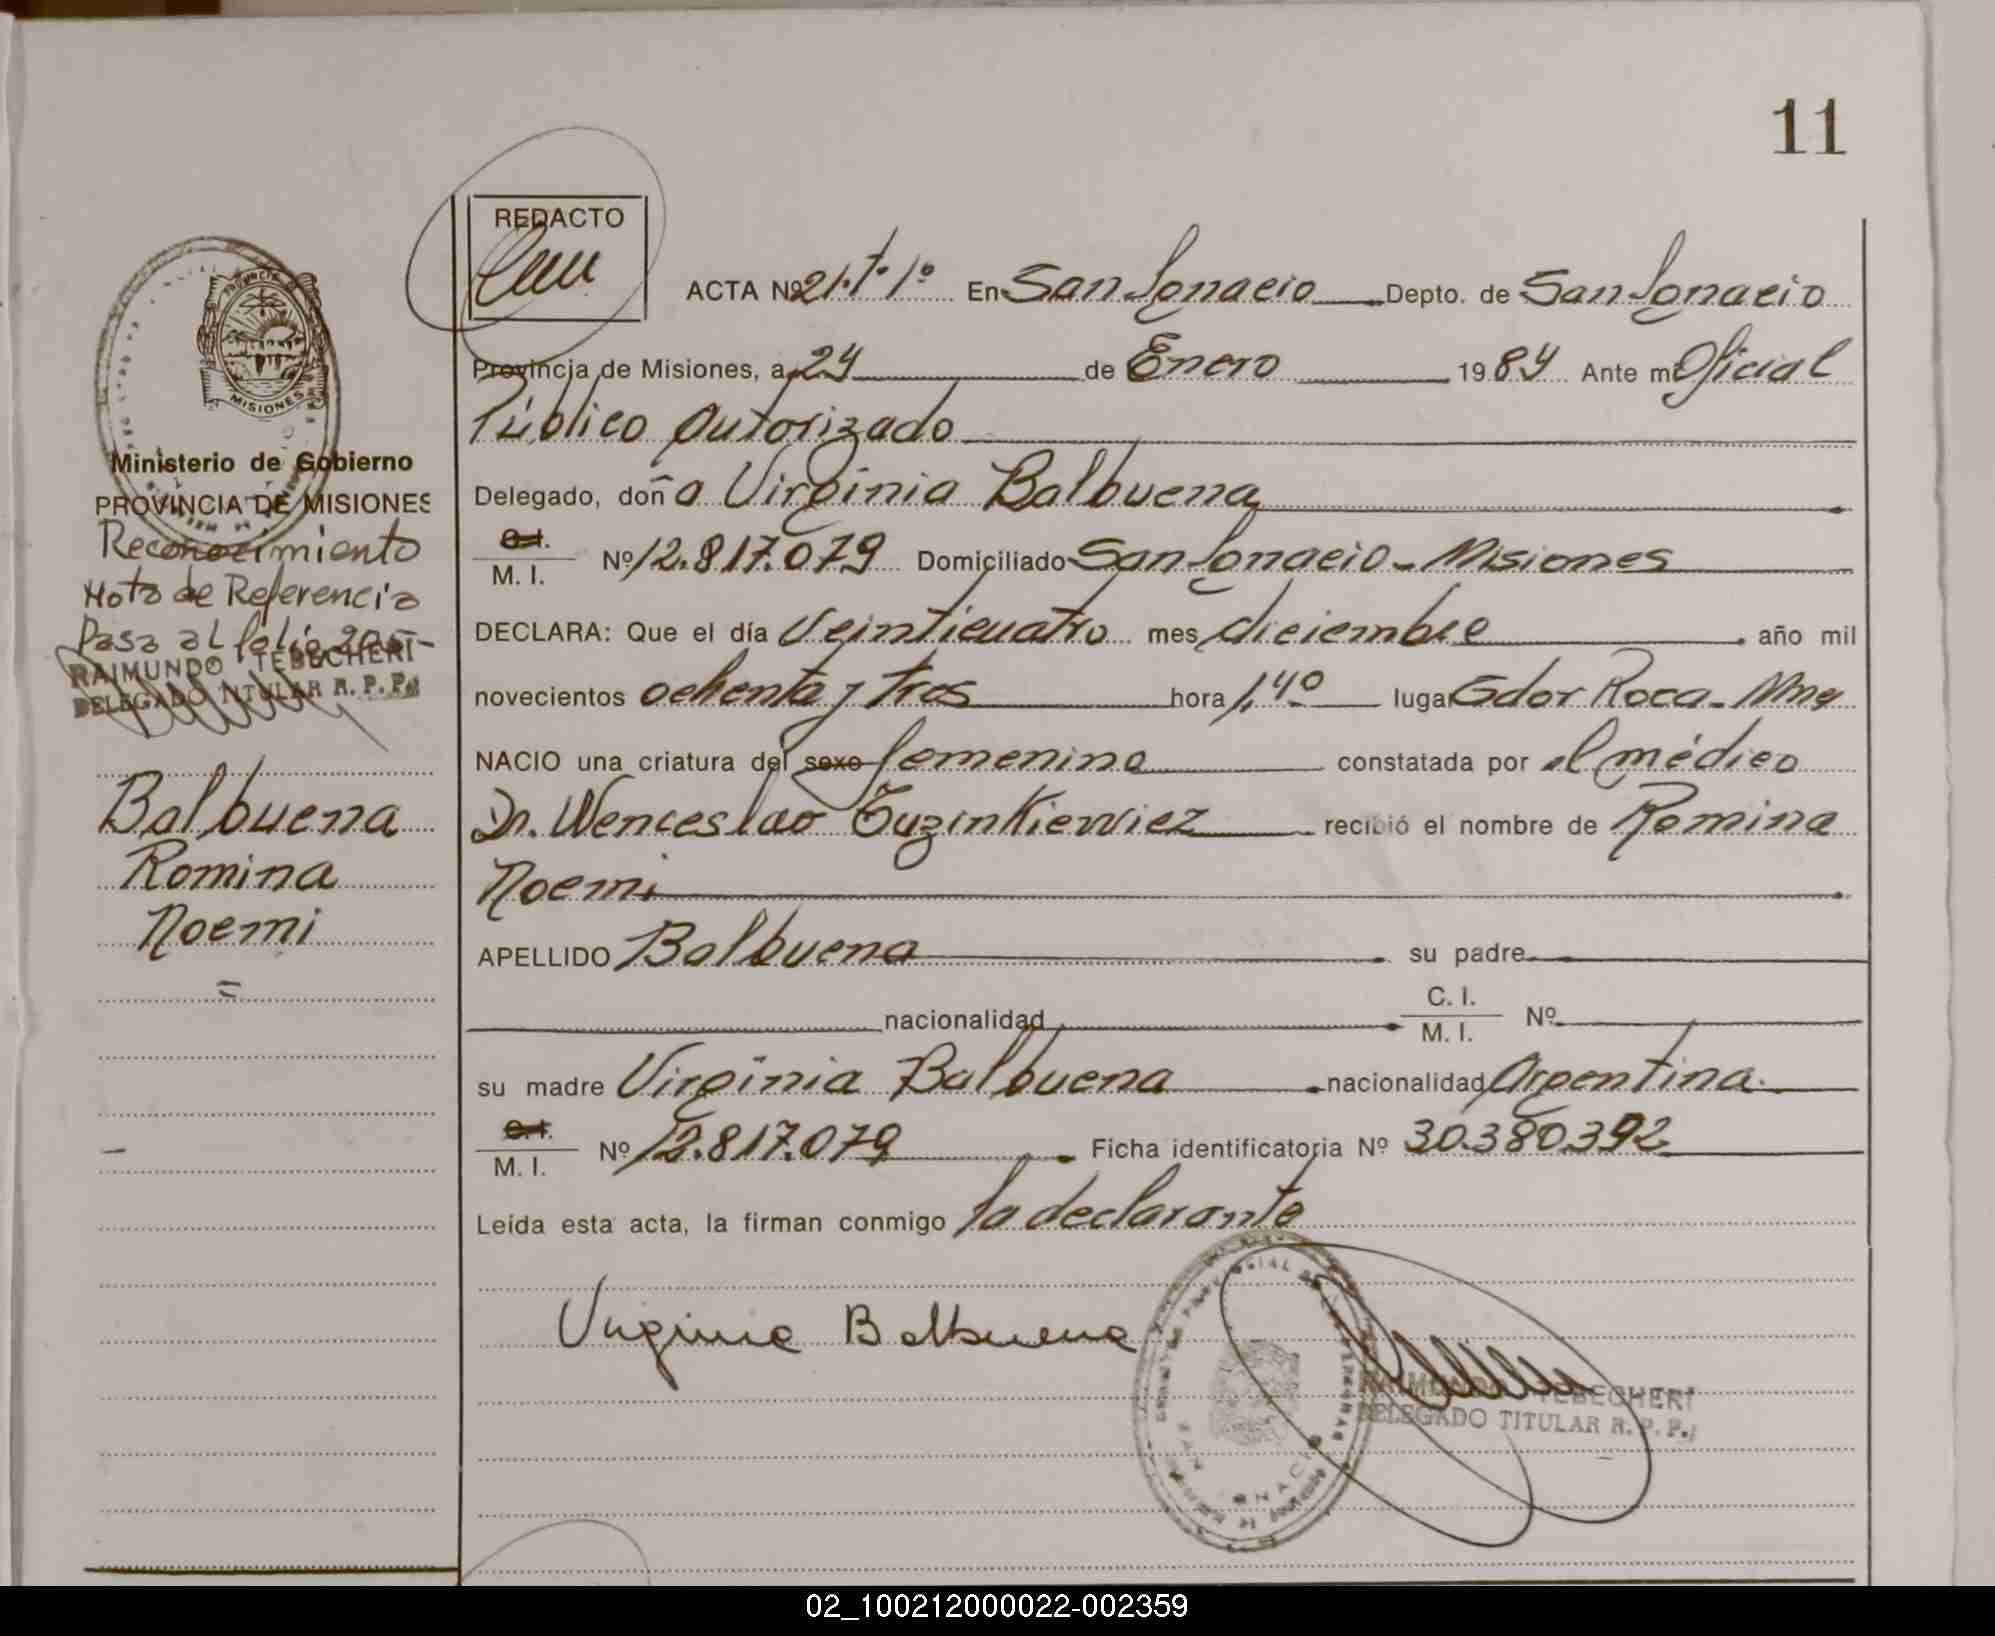 11
REDACTO
ACTA Nº 21.t.1º En San Ignacio Depto. de San Ignacio
Provincia de Misiones, a 24 de Enero 1984 Ante mí Oficial
Público Autorizado
Delegado, doña Virginia Balbuena
C.I. / M. I. Nº 12.817.079 Domiciliado San Ignacio - Misiones
DECLARA: Que el día Veinticuatro mes diciembre año mil
novecientos ochenta y tres hora 1,40 lugar Gdor Roca - Mnes
NACIO una criatura del sexo femenino constatada por el médico
Dr. Wenceslao Guzinkiewiez recibió el nombre de Romina
Noemi
APELLIDO Balbuena su padre
nacionalidad C. I. / M. I. Nº
su madre Virginia Balbuena nacionalidad Argentina
C.I. / M. I. Nº 12.817.079 Ficha identificatoria Nº 30.380.392
Leída esta acta, la firman conmigo la declarante
Virginia Balbuena
RAIMUNDO TEBECHERI
DELEGADO TITULAR R. P. P.
PROVINCIA DE
MISIONES
Ministerio de Gobierno
PROVINCIA DE MISIONES
Reconocimiento
Nota de Referencia
Pasa al folio 205-
RAIMUNDO TEBECHERI
DELEGADO TITULAR R. P. P.
Balbuena
Romina
Noemi
=
02_100212000022-002359